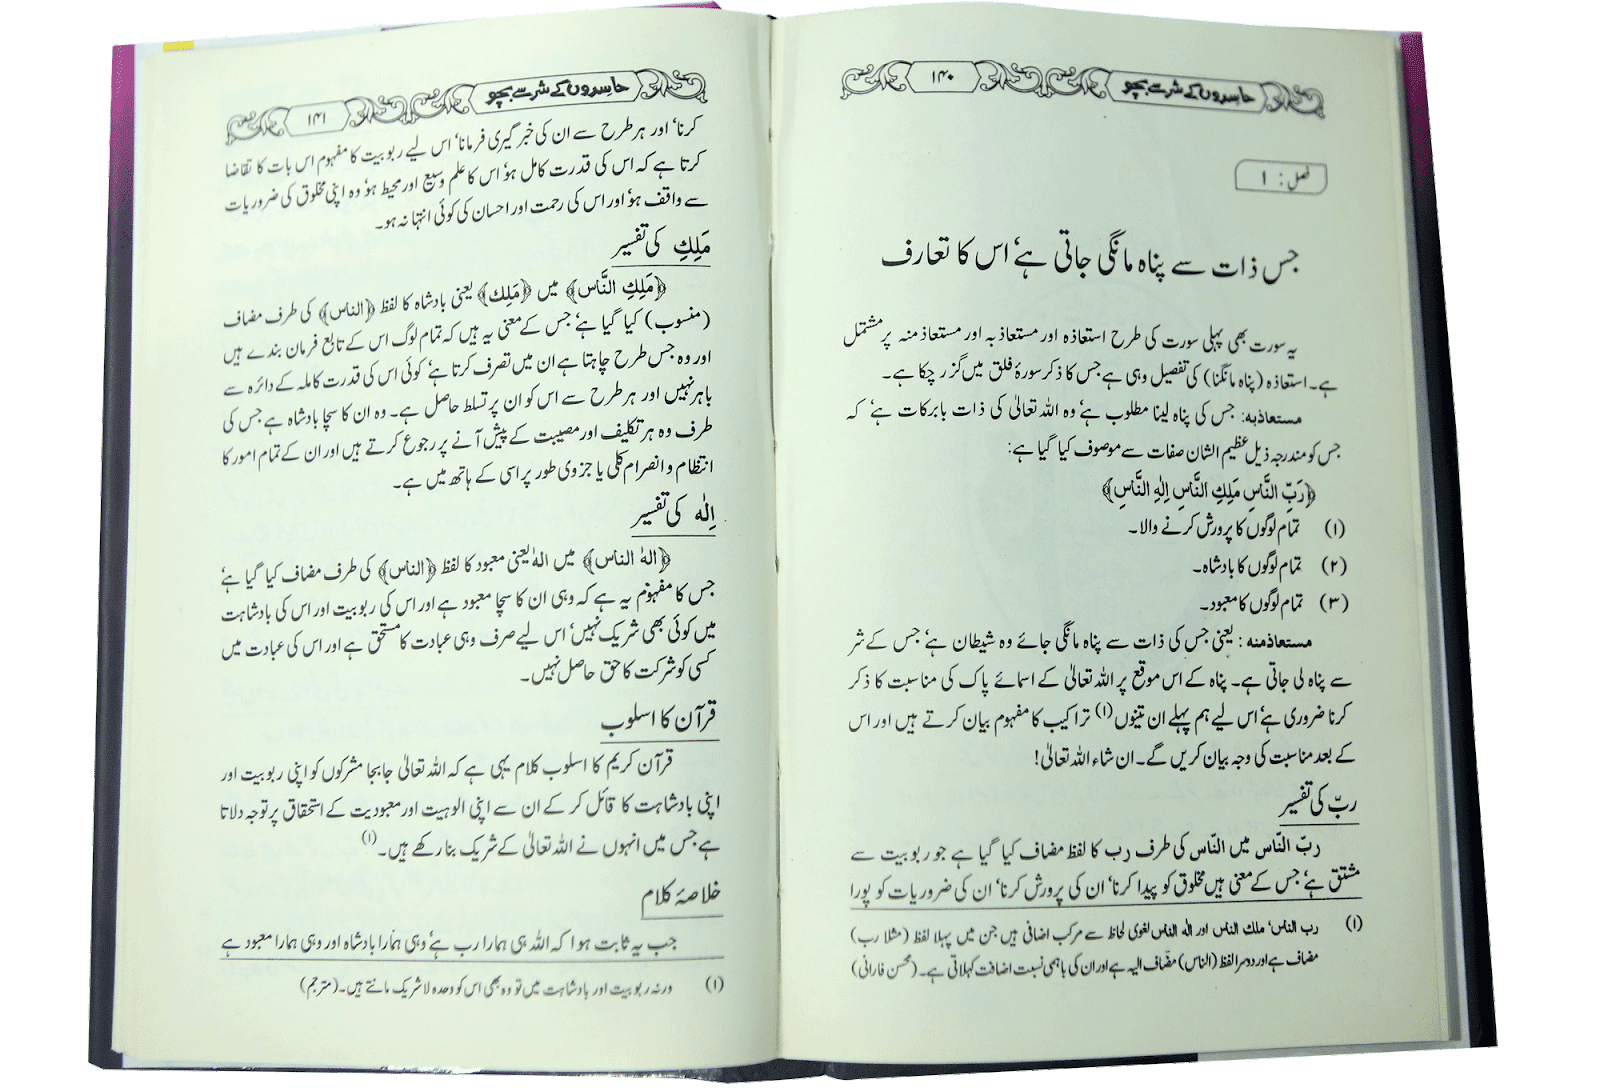 حاسدوں کے شر سے بچو
۱۴۰
فصل: ۱
جس ذات سے پناہ مانگی جاتی ہے، اس کا تعارف
یہ سورت بھی پہلی سورت کی طرح استعاذہ اور مستعاذ بہ اور مستعاذ منہ پر مشتمل
ہے۔ استعاذہ (پناہ مانگنا) کی تفصیل وہی ہے جس کا ذکر سورۂ فلق میں گزر چکا ہے۔
مستعاذبہ: جس کی پناہ لینا مطلوب ہے، وہ اللہ تعالیٰ کی ذات بابرکات ہے، کہ
جس کو مندرجہ ذیل عظیم الشان صفات سے موصوف کیا گیا ہے:
﴿رَبِّ النَّاسِ مَلِكِ النَّاسِ اِلٰهِ النَّاسِ﴾
(۱) تمام لوگوں کا پرورش کرنے والا۔
(۲) تمام لوگوں کا بادشاہ۔
(۳) تمام لوگوں کا معبود۔
مستعاذمنہ: یعنی جس کی ذات سے پناہ مانگی جائے وہ شیطان ہے، جس کے شر
سے پناہ لی جاتی ہے۔ پناہ کے اس موقع پر اللہ تعالیٰ کے اسمائے پاک کی مناسبت کا ذکر
کرنا ضروری ہے، اس لیے ہم پہلے ان تینوں(۱) تراکیب کا مفہوم بیان کرتے ہیں اور اس
کے بعد مناسبت کی وجہ بیان کریں گے۔ ان شاء اللہ تعالیٰ!
ربّ کی تفسیر
ربّ النّاس میں النّاس کی طرف رب کا لفظ مضاف کیا گیا ہے جو ربوبیت سے
مشتق ہے، جس کے معنی ہیں مخلوق کو پیدا کرنا، ان کی پرورش کرنا، ان کی ضروریات کو پورا
(۱) رب الناس، ملك الناس اور اله الناس لغوی لحاظ سے مرکب اضافی ہیں جن میں پہلا لفظ (مثلا رب)
مضاف ہے اور دوسرا لفظ (الناس) مضاف الیہ ہے اور ان کی باہمی نسبت اضافت کہلاتی ہے۔ (محسن فارانی)
حاسدوں کے شر سے بچو
۱۴۱
کرنا، اور ہر طرح سے ان کی خبر گیری فرمانا، اس لیے ربوبیت کا مفہوم اس بات کا تقاضا
کرتا ہے کہ اس کی قدرت کامل ہو، اس کا علم وسیع اور محیط ہو، وہ اپنی مخلوق کی ضروریات
سے واقف ہو، اور اس کی رحمت اور احسان کی کوئی انتہا نہ ہو۔
مَلِكِ کی تفسیر
﴿مَلِكِ النَّاس﴾ میں ﴿مَلِك﴾ یعنی بادشاہ کا لفظ ﴿الناس﴾ کی طرف مضاف
(منسوب) کیا گیا ہے، جس کے معنی یہ ہیں کہ تمام لوگ اس کے تابع فرمان بندے ہیں
اور وہ جس طرح چاہتا ہے ان میں تصرف کرتا ہے، کوئی اس کی قدرت کاملہ کے دائرہ سے
باہر نہیں اور ہر طرح سے اس کو ان پر تسلط حاصل ہے۔ وہ ان کا سچا بادشاہ ہے جس کی
طرف وہ ہر تکلیف اور مصیبت کے پیش آنے پر رجوع کرتے ہیں اور ان کے تمام امور کا
انتظام و انصرام کلی یا جزوی طور پر اسی کے ہاتھ میں ہے۔
اِلٰه کی تفسیر
﴿الهٰ الناس﴾ میں الهٰ یعنی معبود کا لفظ ﴿الناس﴾ کی طرف مضاف کیا گیا ہے،
جس کا مفہوم یہ ہے کہ وہی ان کا سچا معبود ہے اور اس کی ربوبیت اور اس کی بادشاہت
میں کوئی بھی شریک نہیں، اس لیے صرف وہی عبادت کا مستحق ہے اور اس کی عبادت میں
کسی کو شرکت کا حق حاصل نہیں۔
قرآن کا اسلوب
قرآن کریم کا اسلوب کلام یہی ہے کہ اللہ تعالیٰ جابجا مشرکوں کو اپنی ربوبیت اور
اپنی بادشاہت کا قائل کر کے ان سے اپنی الوہیت اور معبودیت کے استحقاق پر توجہ دلاتا
ہے جس میں انہوں نے اللہ تعالیٰ کے شریک بنا رکھے ہیں۔(۱)
خلاصۂ کلام
جب یہ ثابت ہوا کہ اللہ ہی ہمارا رب ہے، وہی ہمارا بادشاہ اور وہی ہمارا معبود ہے
(۱) ورنہ ربوبیت اور بادشاہت میں تو وہ بھی اس کو وحدہ لا شریک مانتے ہیں۔ (مترجم)